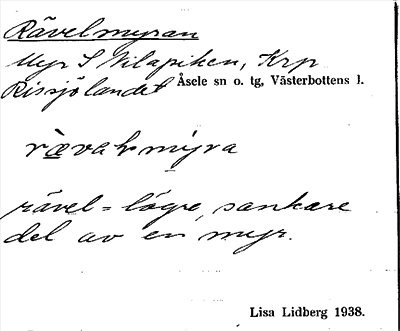 Rävelmyran
Myr S Nilapiken, Krp
Rissjölandet Åsele sn o. tg, Västerbottens l.
rävel = lägre, sankare
del av en myr.
Lisa Lidberg 1938.